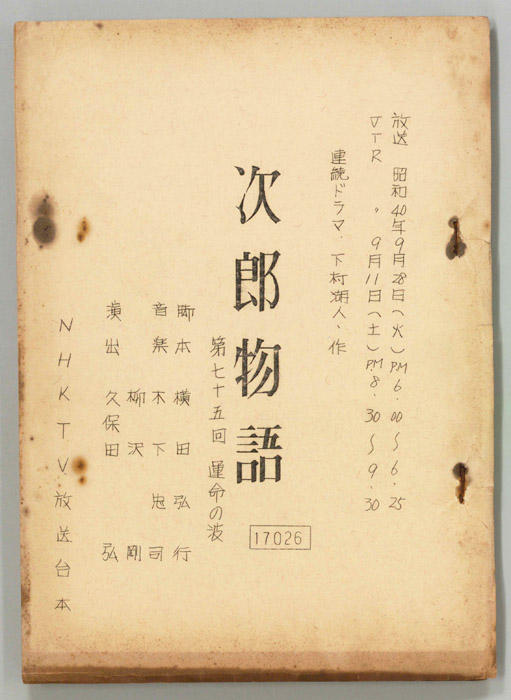 放送 昭和40年9月28日(火)PM6.00〜6.25
VTR 〃 9月11日(土)PM8.30〜9.30
連続ドラマ、下村湖人、作
次郎物語
第七十五回 運命の波
17026
脚本 横田弘行
音楽 木下忠司
柳沢剛
演出 久保田弘
NHKTV放送台本